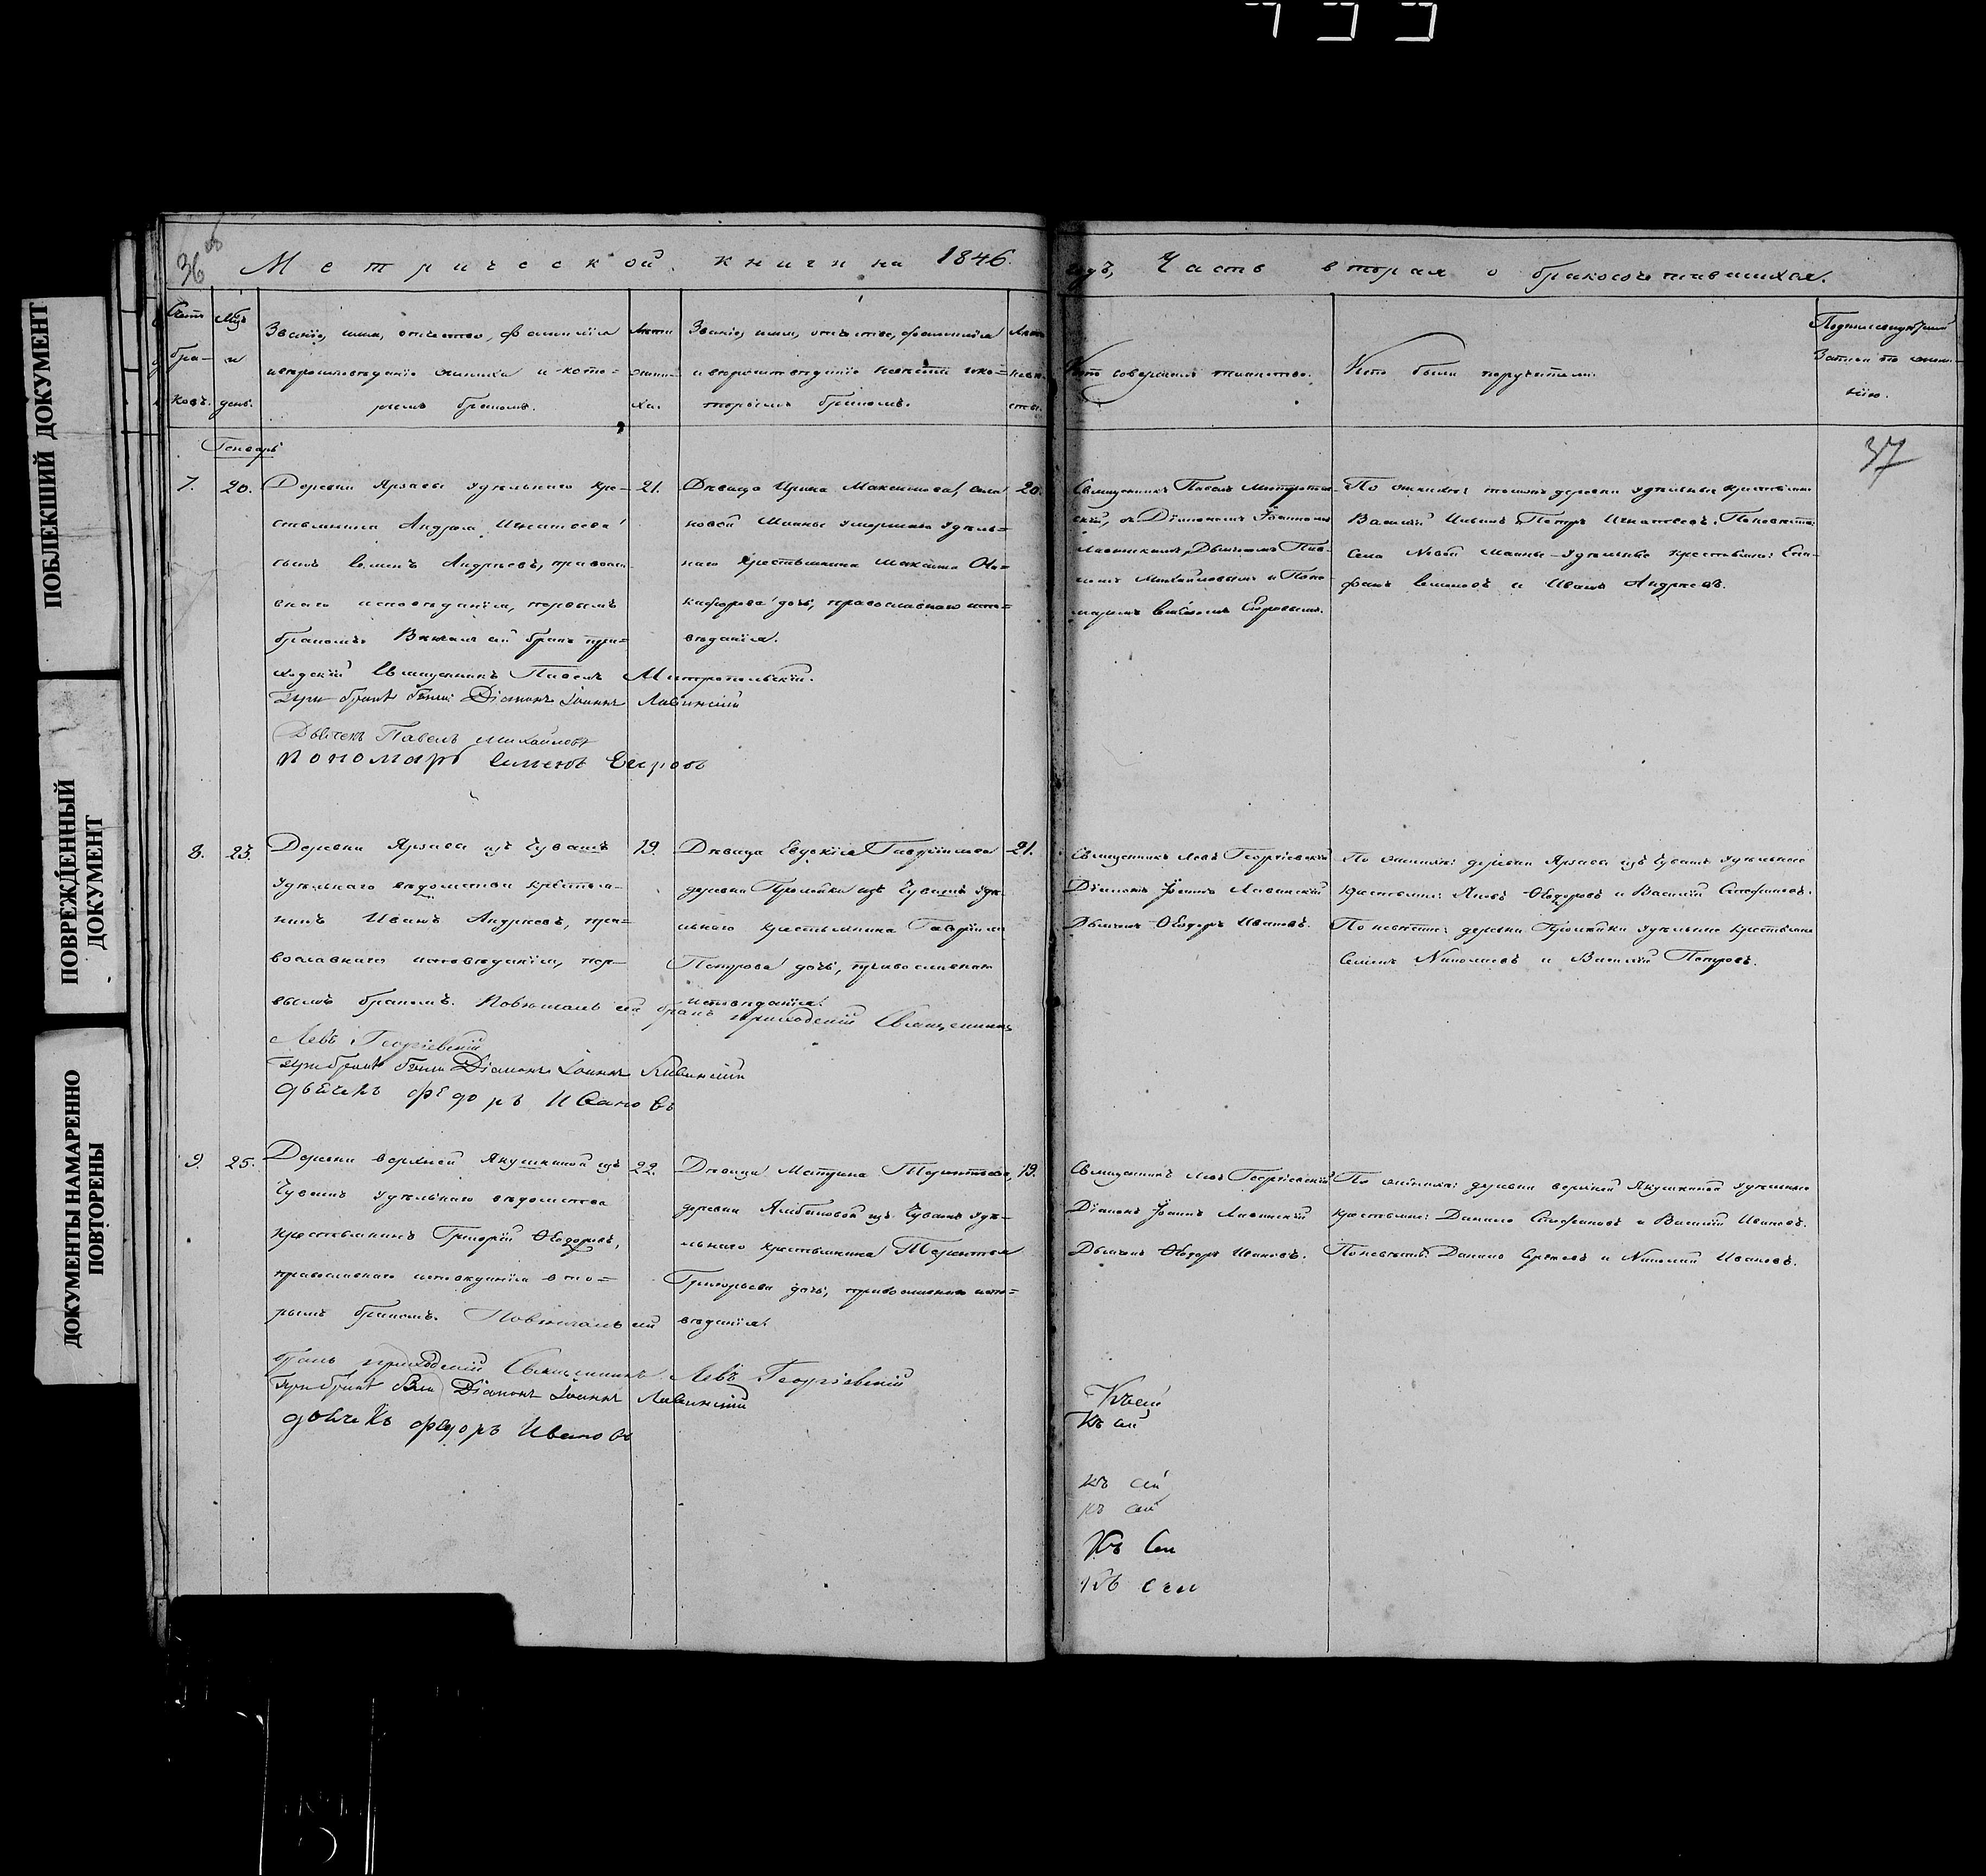 ПОБЛЕКШИЙ ДОКУМЕНТ
ПОВРЕЖДЕННЫЙ
ДОКУМЕНТ
ДОКУМЕНТЫ НАМАРЕННО
ПОВТОРЕНЫ
36
Метрической книги на 1846.
годъ, Часть вторая о бракосочетавшихся.
Счетъ
бра-
ковъ.
Мцъ
и
день.
Званіе, имя, отчество, фамилія
и вѣроисповѣданіе жениха и кото-
рымъ бракомъ.
Лѣта
жени-
ха.
Званіе, имя, отчество, фамилія
и вѣроисповѣданіе невѣсты и ко-
торымъ бракомъ.
Лѣта
невѣ-
сты.
Кто совершалъ таинство.
Кто были поручители.
Подписаніе
записи по
нію.
37
Генварь
7.
20.
Деревни Арзаевы удѣльнаго кре-
стьянина Андрея Игнатьева
сынъ Семенъ Андреевъ, правосла-
внаго исповѣданія, первымъ
бракомъ. Вѣнчалъ сей бракъ при-
ходскій Священникъ Павелъ Митропольскій.
При бракѣ были: Діаконъ Іоаннъ Лавинскій
Дьячекъ Павелъ Михайловъ
Пономарь Семенъ Егоровъ
21.
Дѣвица Ирина Максимова, села
Новой Маины умершаго удѣль-
наго крестьянина Максима Ни-
кифорова дочь, православнаго испо-
вѣданія.
20.
Священникъ Павелъ Митрополь-
скій, съ Діакономъ Іоанномъ
Лавинскимъ, Дьячкомъ Пав-
ломъ Михайловымъ и Поно-
маремъ Семеномъ Егоровымъ.
По женихѣ: тоежъ деревни удѣльные крестьяне
Василій Ильинъ и Петръ Игнатьевъ. По невѣстѣ:
Села Новой Маины удѣльные крестьяне: Епи-
фанъ Семеновъ и Иванъ Андреевъ.
8.
23.
Деревни Арзаева изъ Чувашъ
удѣльнаго вѣдомства крестья-
нинъ Иванъ Андреевъ, пра-
вославнаго исповѣданія, пер-
вымъ бракомъ. Повѣнчалъ сей бракъ приходскій Священникъ
Левъ Георгіевскій
При бракѣ были Діаконъ Іоаннъ Лавинскій
дьячекъ Федоръ Ивановъ
19.
Дѣвица Евдокія Гавріилова
деревни Пролейки изъ Чувашъ удѣ-
льнаго крестьянина Гавріила
Петрова дочь, православнаго
исповѣданія.
21.
Священникъ Левъ Георгіевскій
Діаконъ Іоаннъ Лавинскій
Дьячекъ Ѳеодоръ Ивановъ.
По женихѣ: деревни Арзаева изъ Чувашъ удѣльные
крестьяне: Яковъ Ѳеодоровъ и Василій Стефановъ.
По невѣстѣ: деревни Пролейки удѣльные крестьяне
Семенъ Николаевъ и Василій Петровъ.
9.
25.
Деревни верхней Якушкиной изъ
Чувашъ удѣльнаго вѣдомства
крестьянинъ Григорій Ѳеодоровъ,
православнаго исповѣданія вто-
рымъ бракомъ. Повѣнчалъ сей
бракъ приходскій Священникъ Левъ Георгіевскій
При бракѣ были Діаконъ Іоаннъ Лавинскій
дьячекъ Федоръ Ивановъ
22.
Дѣвица Матрена Терентьева,
деревни изъ Чувашъ удѣ-
льнаго крестьянина Терентья
Григорьева дочь, православнаго испо-
вѣданія.
19.
Священникъ Левъ Георгіевскій
Діаконъ Іоаннъ Лавинскій
Дьячекъ Ѳеодоръ Ивановъ.
По женихѣ: деревни верхней Якушкиной удѣльные
крестьяне: Данило Стефановъ и Василій Ивановъ.
По невѣстѣ: Данило Сергѣевъ и Николай Ивановъ.
Къ сей
Къ сей
Къ сей
Къ сей
Къ Сей
Къ сей